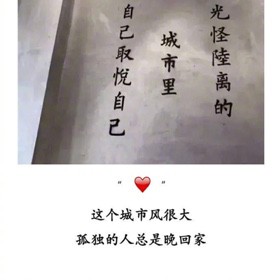 光怪陸離的
城市里
自己取悅自己
" ❤️ "
这个城市风很大
孤独的人总是晚回家